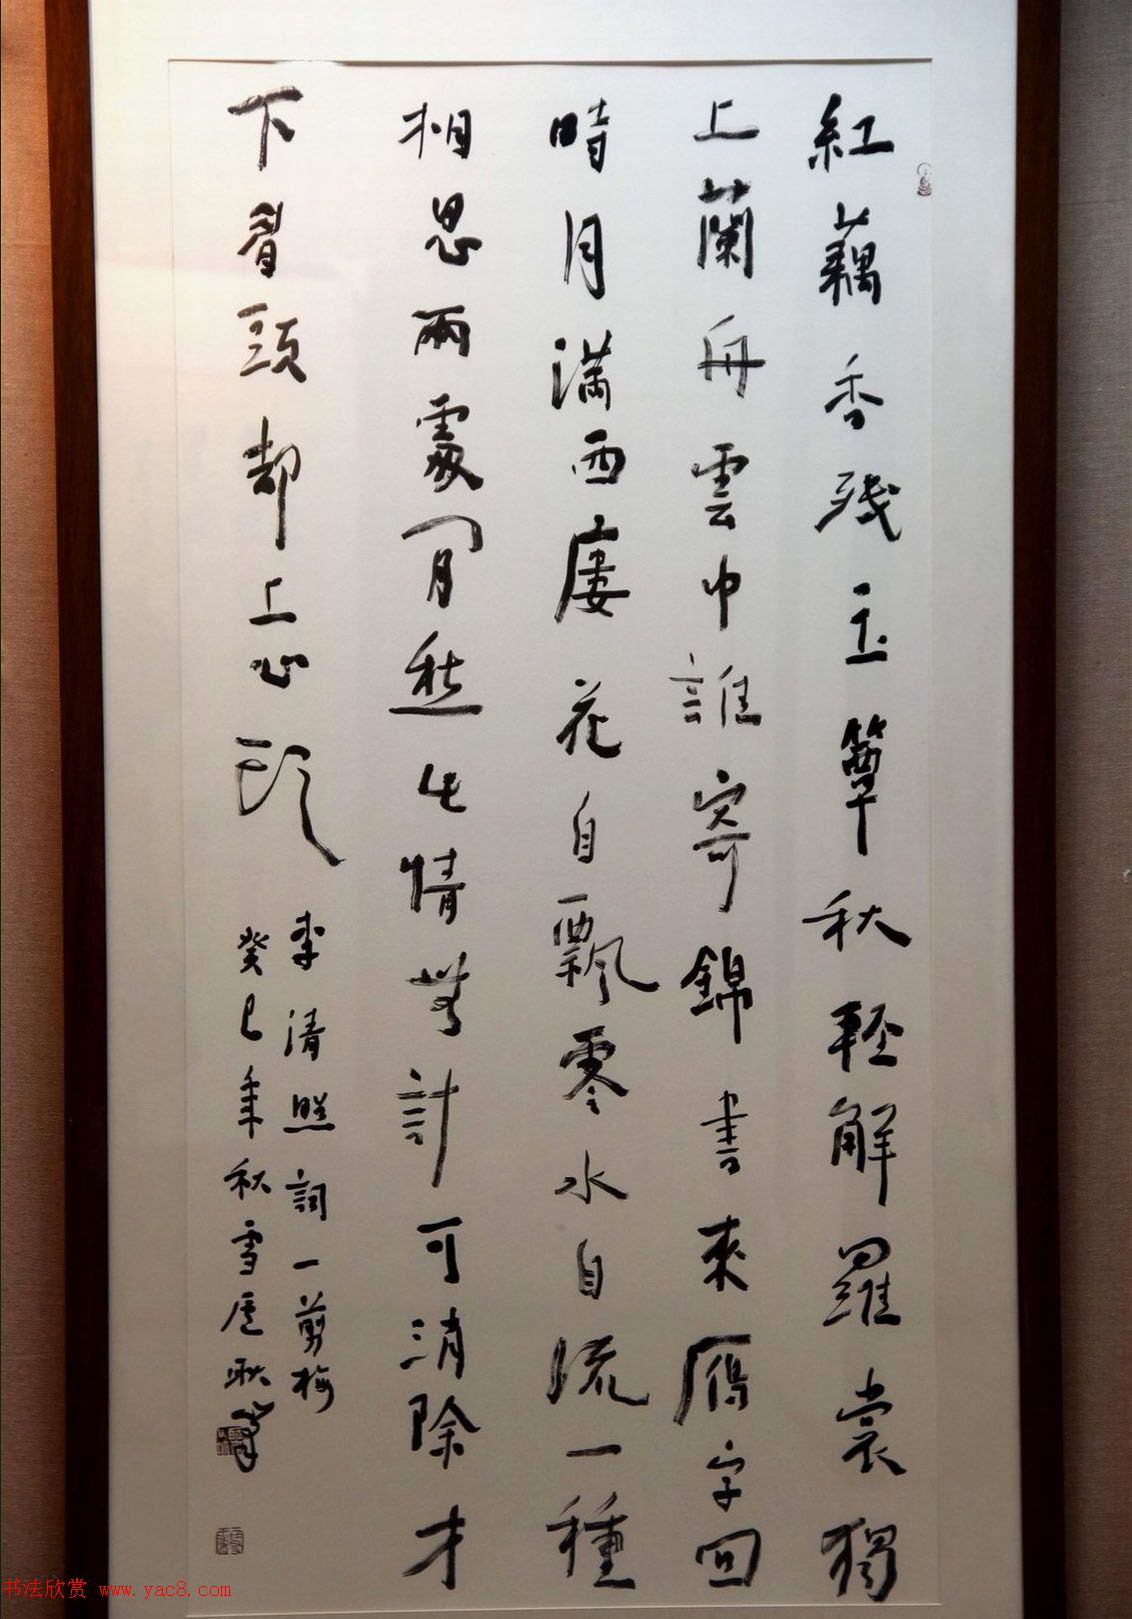 紅藕香殘玉簟秋輕解羅裳獨
上蘭舟雲中誰寄錦書來雁字回
時月滿西廔花自飄零水自流一種
相思兩處閒愁此情無計可消除才
下眉頭却上心頭
李清照詞一剪梅
癸巳年秋雪廬耿
书法欣赏 www.yac8.com